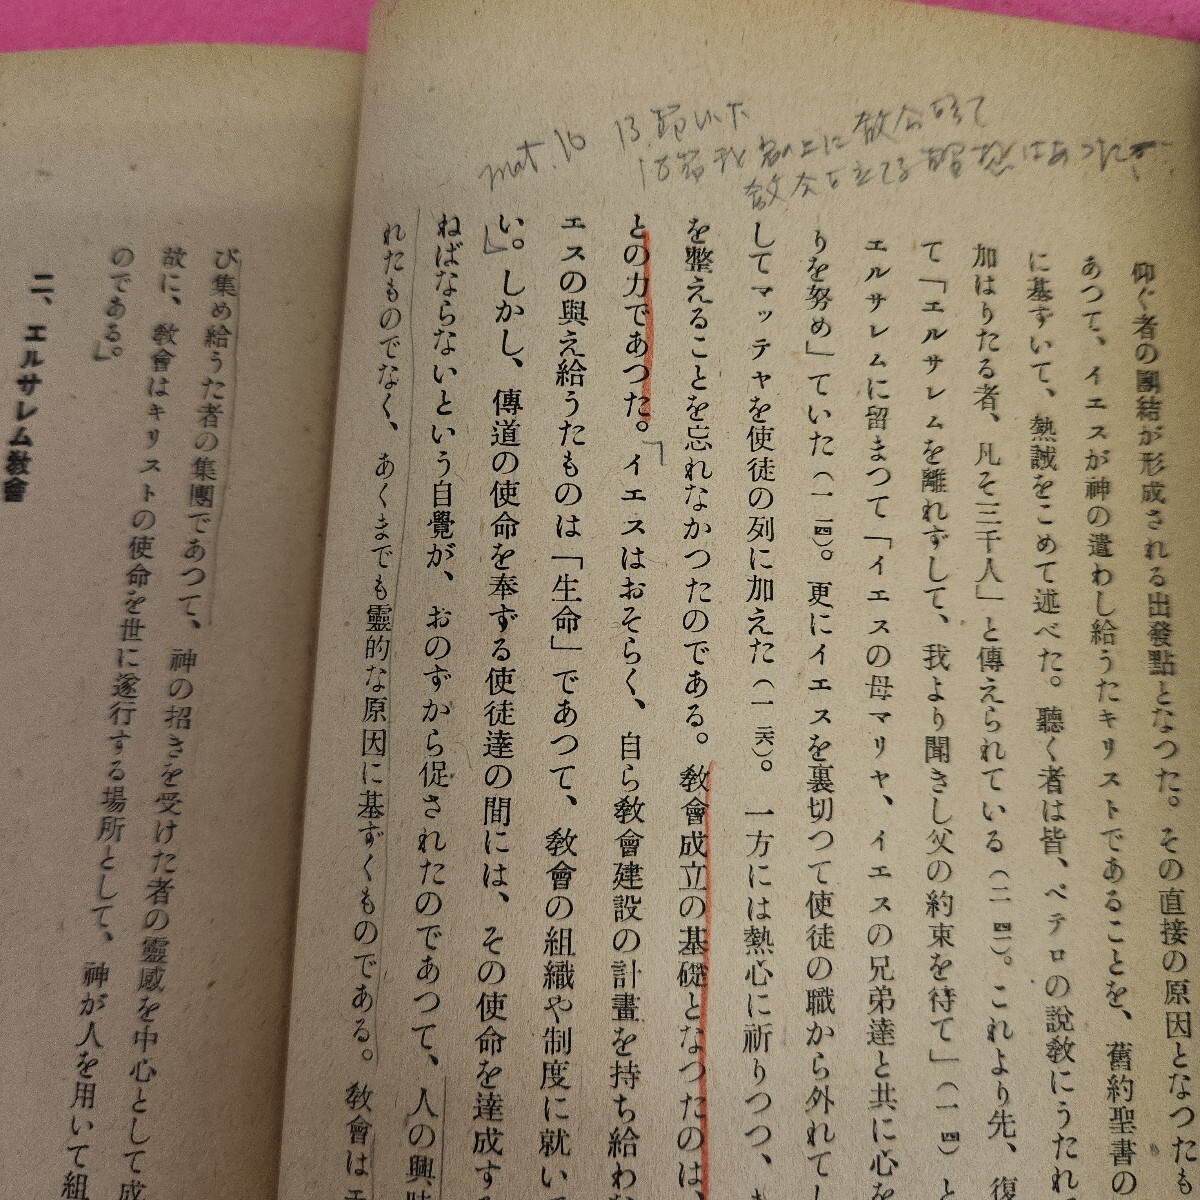 mat.16 13節以下
18節 我 岩の上に教会を
仰ぐ者の團結が形成される出發點となつた。その直接の原因となつたも
あつて、イエスが神の遣わし給うたキリストであることを、舊約聖書の
に基ずいて、熱誠をこめて述べた。聽く者は皆、ペテロの說教にうたれ
加はりたる者、凡そ三千人」と傳えられている(二 四一)。これより先、復
て「エルサレムを離れずして、我より聞きし父の約束を待て」(一 四)と
エルサレムに留まつて「イエスの母マリヤ、イエスの兄弟達と共に心を
りを努め」ていた(一 一四)。更にイエスを裏切つて使徒の職から外れてし
してマッテヤを使徒の列に加えた(一 二六)。一方には熱心に祈りつつ、も
を整えることを忘れなかつたのである。教會成立の基礎となつたのは、
との力であつた。イエスはおそらく、自ら教會建設の計畫を持ち給わな
エスの與え給うたものは「生命」であつて、教會の組織や制度に就いて
い。しかし、傳道の使命を奉ずる使徒達の間には、その使命を達成す
ねばならないという自覺が、おのずから促されたのであつて、人の興味
れたものでなく、あくまでも靈的な原因に基ずくものである。教會はエ
び集め給うた者の集團であつて、神の招きを受けた者の靈感を中心として成
故に、教會はキリストの使命を世に遂行する場所として、神が人を用いて組
のである。
二、エルサレム教會